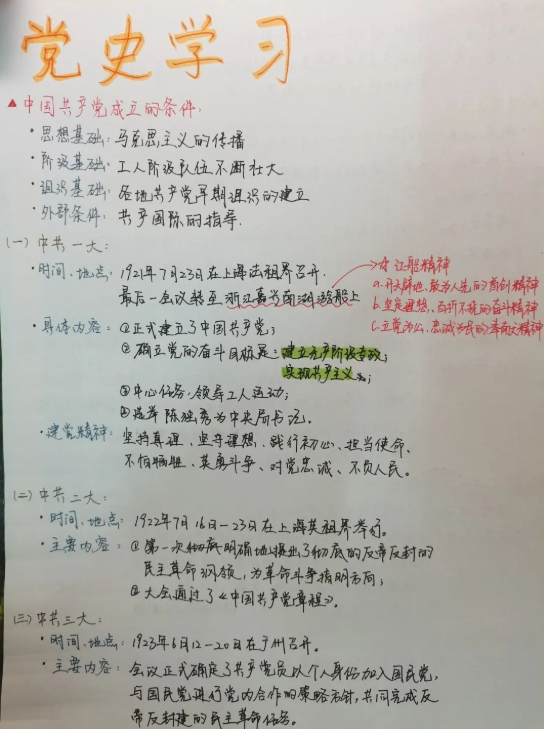 党史学习
▲中国共产党成立的条件:
·思想基础:马克思主义的传播
·阶级基础:工人阶级队伍不断壮大
·组织基础:各地共产党早期组织的建立
·外部条件:共产国际的指导.
(一)中共一大:
·时间、地点:1921年7月23在上海法租界召开.
最后一会议转至浙江嘉兴南湖游船上
☆红船精神
a.开天辟地、敢为人先的首创精神
b.坚定理想、百折不挠的奋斗精神
c.立党为公、忠诚为民的革命大精神
·具体内容:①正式建立了中国共产党;
②确立党的奋斗目标是:建立无产阶级专政;
实现共产主义
③中心任务:领导工人运动;
④选举陈独秀为中央局书记。
·建党精神:坚持真理、坚守理想、践行初心、担当使命、
不怕牺牲、英勇斗争、对党忠诚、不负人民。
(二)中共二大:
·时间、地点:1922年7月16日-23日在上海英租界举行。
·主要内容:①第一次彻底明确地提出了彻底的反帝反封的
民主革命纲领,为革命斗争指明方向;
②大会通过了《中国共产党章程》。
(三)中共三大:
·时间、地点:1923年6月12-20日在广州召开。
·主要内容:会议正式确定了共产党员以个人身份加入国民党,
与国民党进行党内合作的策略方针,共同完成反
帝反封建的民主革命任务。